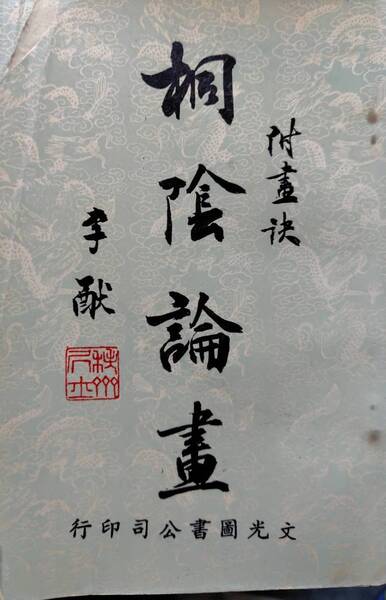 附畫訣
桐陰論畫
李猷
文光圖書公司印行